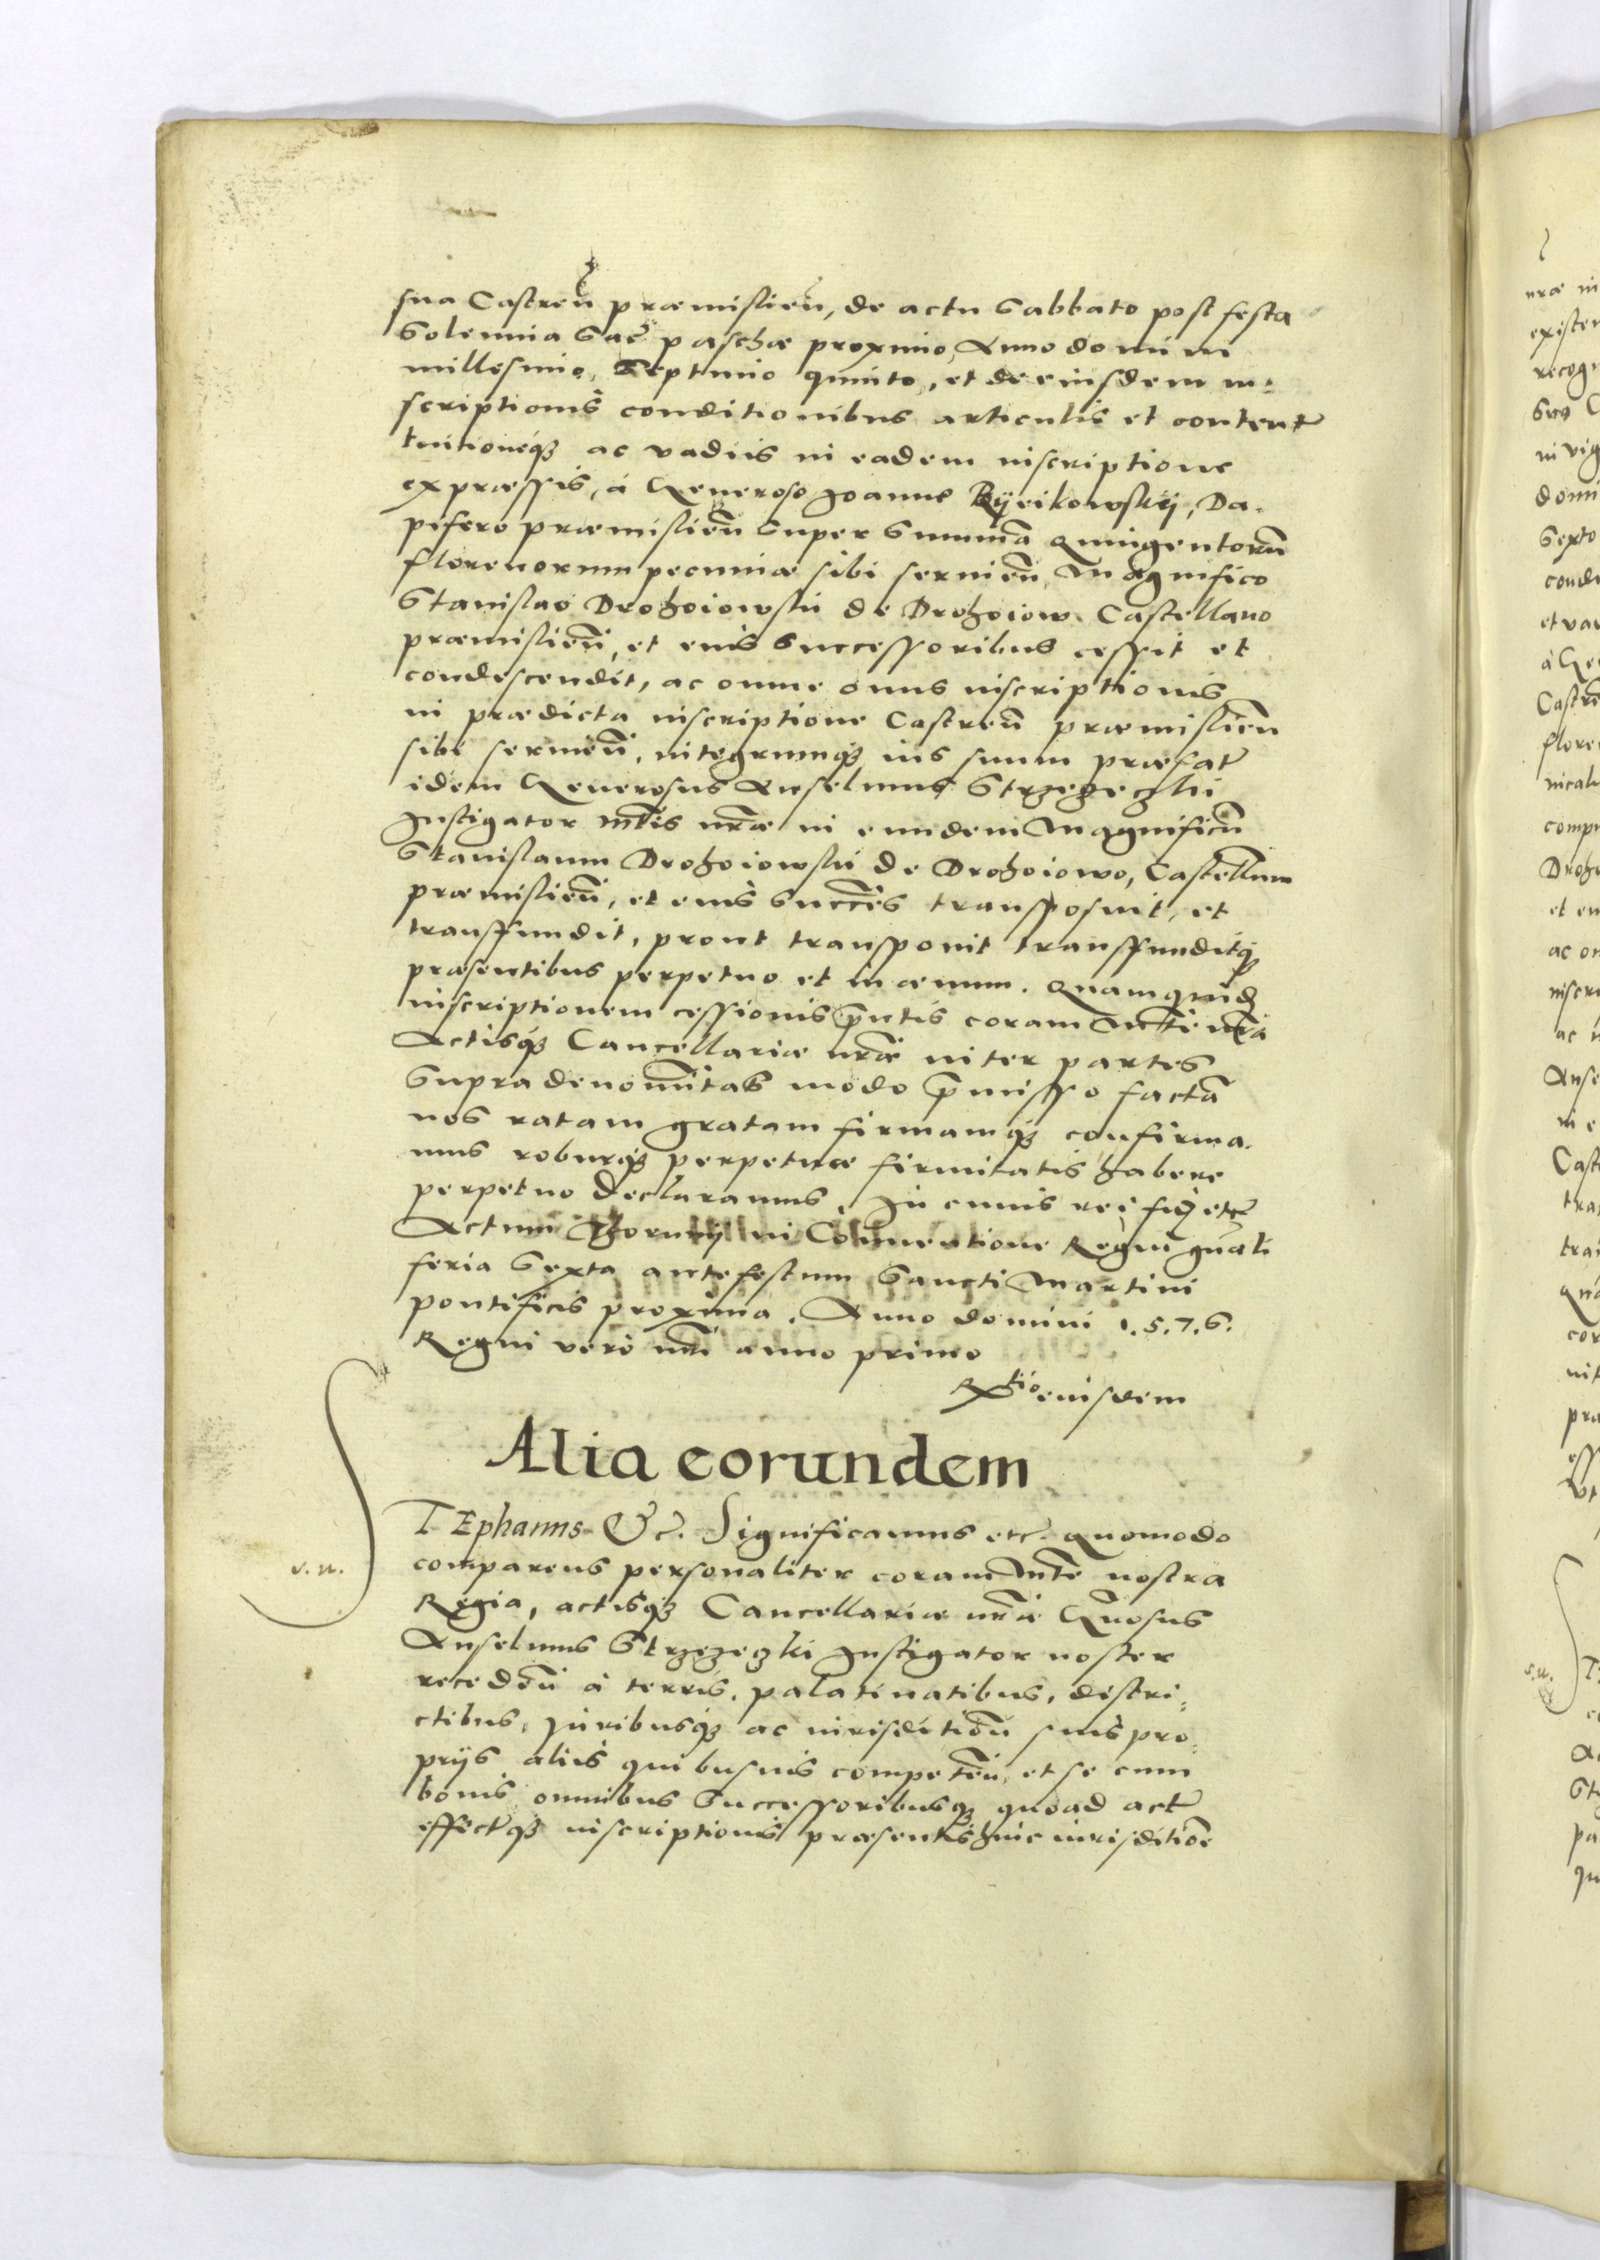 sua Castreñ præmislieñ, de actu Sabbato post festa
Solennia Sacr̃ paschæ proximo, Anno domini
millesimo, Septmio quinto, et de eiusdem in-
scriptionis conditionibus articulis et content̃
tuitioneq₃ ac vadiis in eadem inscriptione
expræssis, á Generoso Joanne Ryeikowskij, Da-
pifero præmislieñ Super Summã quingentorũ
florenorum pecuniæ sibi servieñ, Magnifico
Stanislao Drohoiowski de Drohoiow Castellano
præmislieñ, et eius Successoribus cessit et
condescendit, ac omne onus inscriptionis
in prædicta inscriptione Castreñ præmislieñ
sibi servieñ, integrumq₃ ius suum præfat̃
idem Generosus Anselmus Strzezeczki
Instigator Mt̃is nr̃æ in eundem Magnificũ
Stanislaum Drohoiowski de Drohoiowo, Castellum
præmislieñ, et eius Succes̃ transposuit, et
transfundit, prout transponit transfunditq₃
præsentibus perpetuo et in æuum. Quamquid̃
inscriptionem cessionis p̃ntis coram Mte nr̃a
Actisq₃ Cancellariæ nr̃æ inter partes
Supradenomĩtas modo p̃misso factã
nos ratam gratam firmamq₃ confirma-
mus roburq₃ perpetuæ firmitatis habere
perpetuo declaramus. In cuius rei fid̃ etc̃
Actum Thorunij in Conuentione Regni gñali
feria Sexta ante festum Sancti Martini
pontificis proxima. Anno domini 1.5.7.6.
Regni vero nr̃i anno primo
Rtio eiusdem
Alia eorundem
STEphanus &c. Significamus etc. quomodo
s.n.
comparens personaliter coram Mte nostra
Regia, actisq₃ Cancellariæ nr̃æ Gñosus
Anselmus Strzezeczki Instigator noster
recedeñ à terris, palatinatibus, distri-
ctibus, Juribusq₃ ac iurisditioñ suis pro-
prijs aliis quibusuis competeñ, et se cum
bonis omnibus Successoribusq₃ quoad act̃
effect̃q₃ inscriptionis præsentis huic iurisditioe